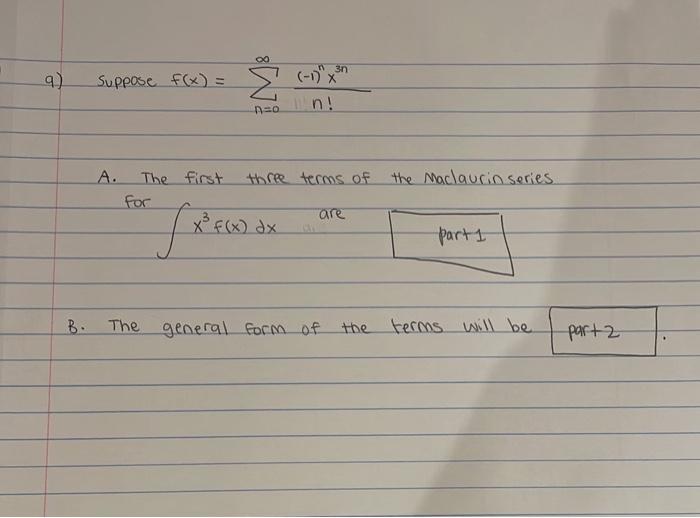 9) Suppose f(x) = ∞ Σ n=0 (-1)ⁿ x³ⁿ / n!
A. The first three terms of the Maclaurin series
for ∫ x³ f(x) dx are part 1
B. The general form of the terms will be part 2.